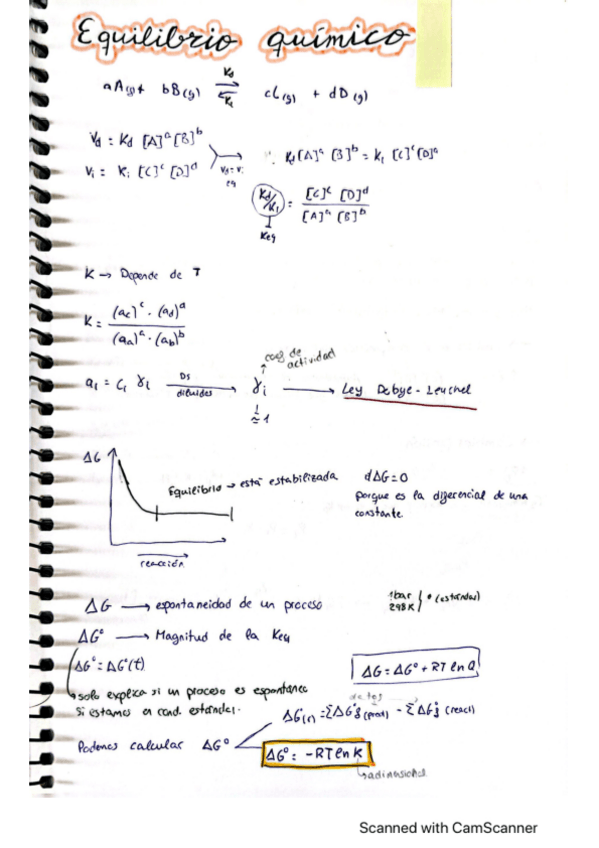 Equilibrio químico
Kd
aA(g) + bB(g) ⇌ cC(g) + dD(g)
Ki
Vd = Kd [A]^a [B]^b
Vi = Ki [C]^c [D]^d
Vd = Vi
eq
∴ Kd [A]^a [B]^b = Ki [C]^c [D]^d
Kd/Ki = [C]^c [D]^d / [A]^a [B]^b
Keq
K → Depende de T
K = (ac)^c · (ad)^d / (aa)^a · (ab)^b
coef de actividad
ai = Ci γi Ds diluidas → γi → Ley Debye-Leuchel
≈ 1
ΔG
Equilibrio → está estabilizada
dΔG = 0
porque es la diferencial de una
constante
reacción
ΔG → espontaneidad de un proceso
1 bar
298 K } ° (estándar)
ΔG° → Magnitud de la Keq
ΔG° = ΔG°(t)
ΔG = ΔG° + RT ln Q
solo explica si un proceso es espontáneo
si estamos en cond. estándar.
ΔG°(r) = ΣΔG°f (prod) - ΣΔG°f (react)
Podemos calcular ΔG°
ΔG° = -RT ln K
adimensional
Scanned with CamScanner